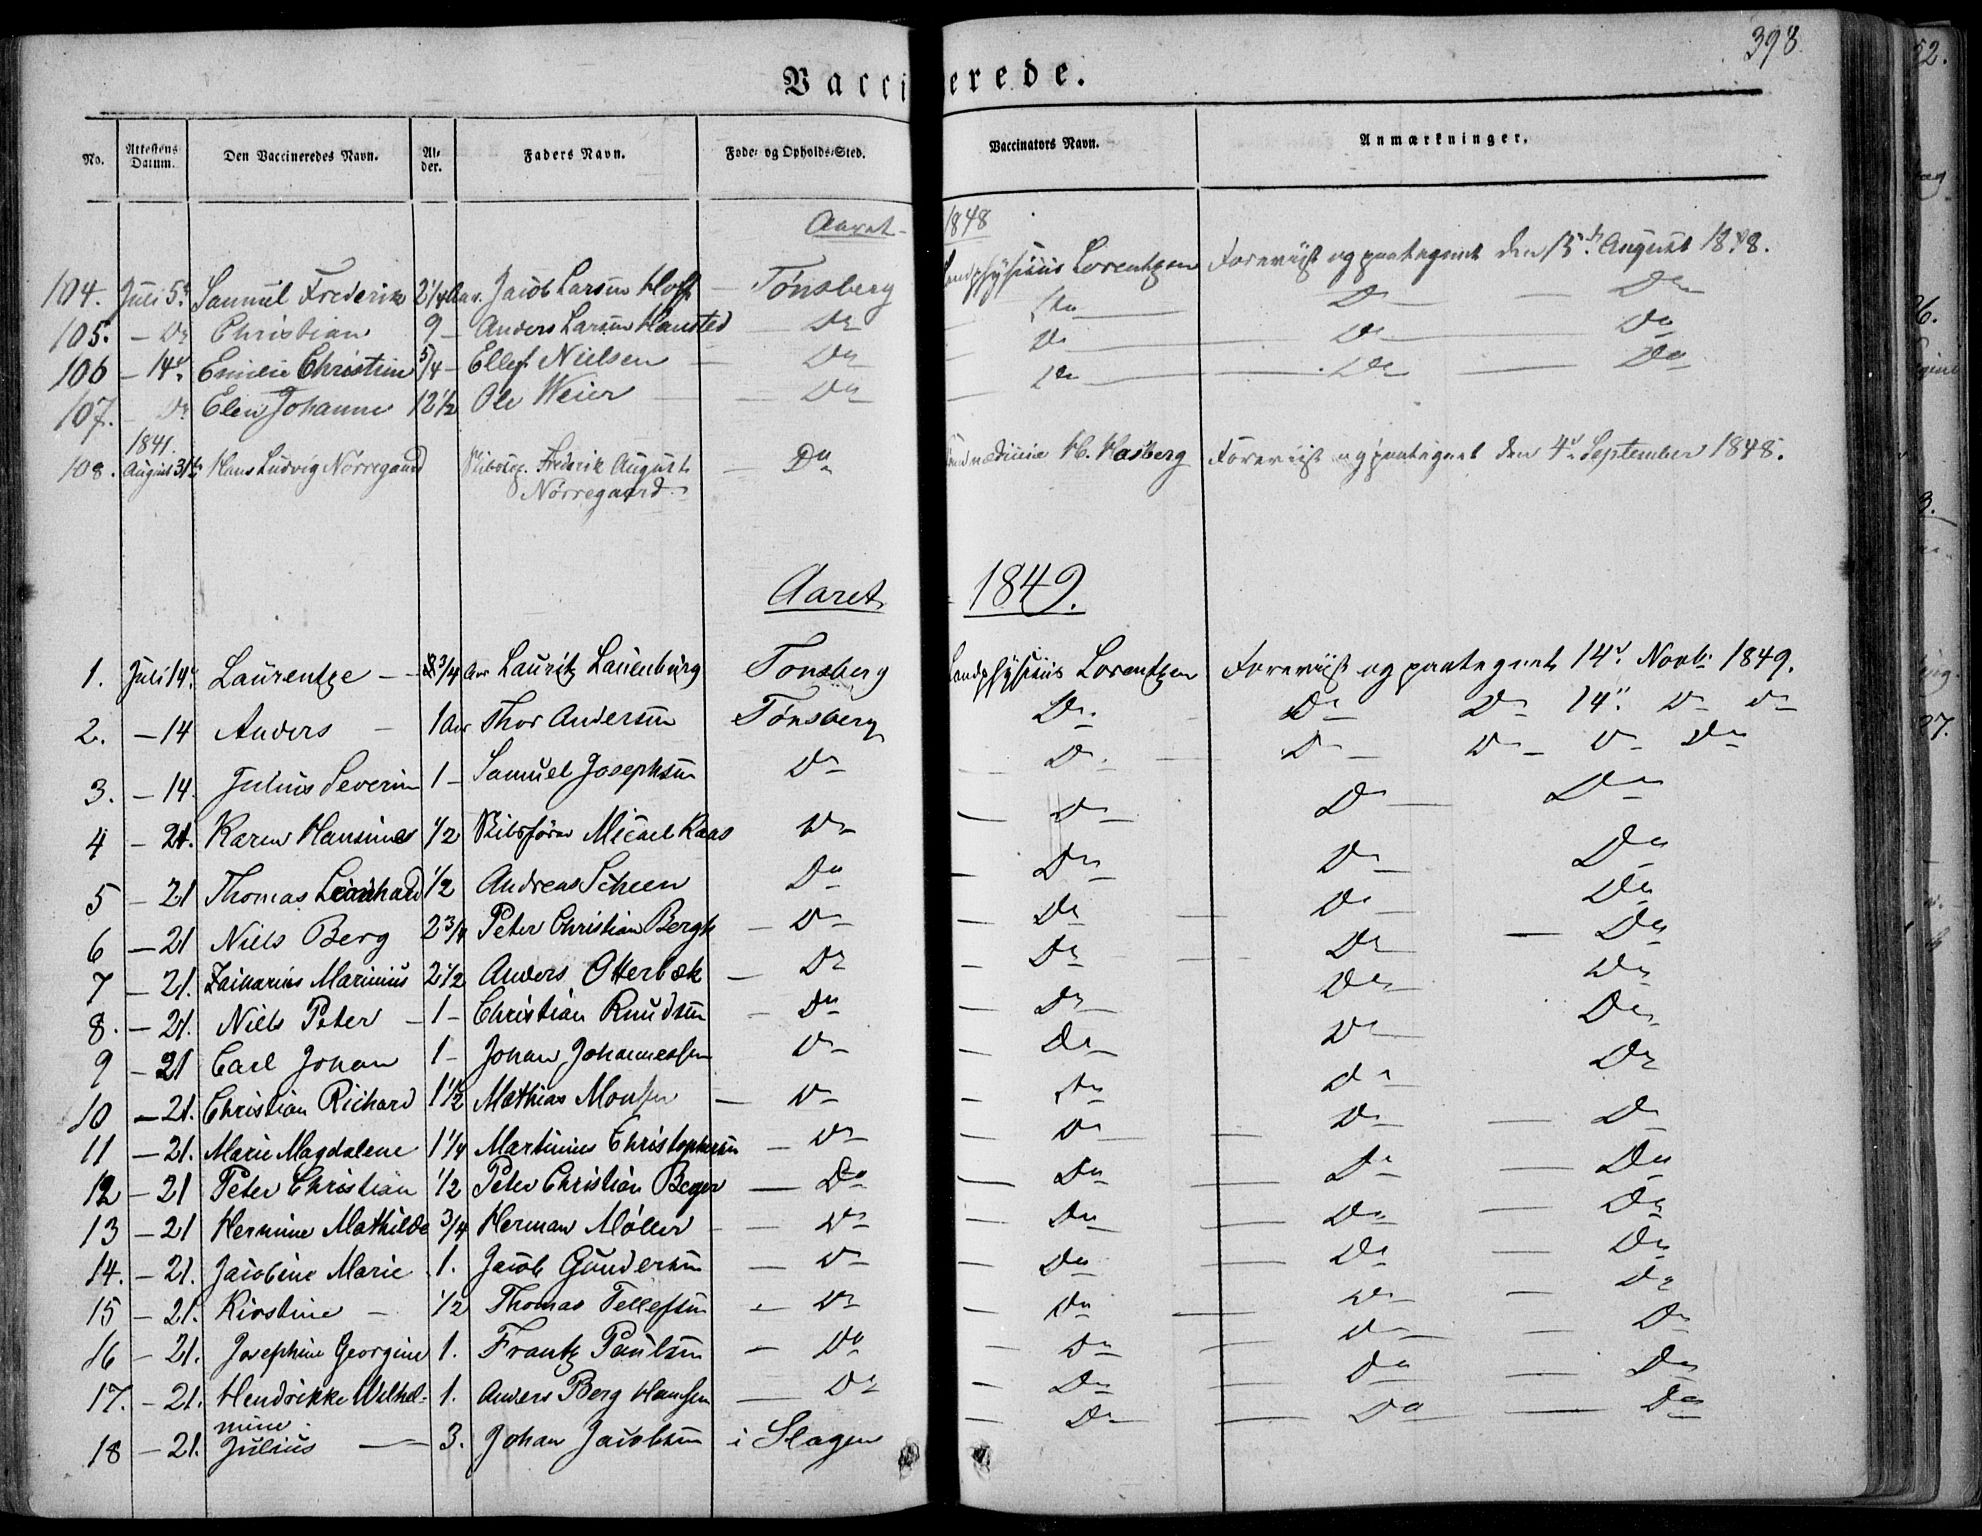 398
Vaccinerede.
No. Attestens Datum. Den Vaccineredes Navn. Alder. Faders Navn. Føde- og Opholds-Sted. Vaccinators Navn. Anmærkninger.
Aaret 1848
104. Juli 5. Samuel Frederik 2 1/4 Aar. Jacob Larsen Hoff — Tønsberg Landphysicus Lorentzen Foreviist og paategnet den 15de August 1848.
105. — Do Christian 9 — Anders Larsen Hansted — Do Do Do — Do
106 — 14. Emilie Christine 5/4 — Ellef Nielsen — Do Do Do Do
107. — Do Elen Johanne 12 1/2 Ole Weier — Do Do Do Do
1841.
108. August 31te Hans Ludvig Nørregaard Frederik August — Do H. Hasberg Foreviist og paategnet den 4de September 1848.
Nørregaard
Aaret 1849.
1. Juli 14. Laurentze — 3/4 Aar Lauritz Lauenburg Tønsberg Landphysicus Lorentzen Foreviist og paategnet 14de Novb. 1849.
2. — 14 Anders — 1 Aar Thor Andersen Tønsberg Do Do Do 14. Do Do
3. — 14. Julius Severin 1 — Samuel Josephsen Do Do Do — Do — Do Do
4 — 21. Karen Hansine 1/2 Skibsfører Michel Kaas Do Do Do — Do
5 — 21 Thomas 1/2 Andreas Scheen Do Do Do Do
6 — 21 Niels Berg 2 3/4 Peter Christian Bergh — Do Do Do Do
7 — 21. Zacharias Marinius 2 1/2 Anders Otterbæk — Do Do Do — Do
8. — 21. Niels Peter — 1 — Christian Knudsen — Do Do Do Do
9 — 21 Carl Johan 1 — Johan Johannessen Do Do Do Do
10 — 21. Christian Richard 1 1/2 Mathias Monsen — Do Do Do Do
11 — 21. Marie Magdalene 1 1/4 Martinius Christophersen — Do Do Do — Do
12 — 21 Peter Christian 1/2 Peter Christian Beyer — Do Do Do — Do
13 — 21 Hermine Mathilde 3/4 Herman Møller — Do Do Do — Do
14. — 21. Jacobine Marie 1. Jacob Gundersen — Do Do Do — Do
15 — 21. Kirstine — 1/2 Thomas Tellefsen — Do Do Do Do
16 — 21. Josephine Georgine 1. Frantz Paulsen — Do Do Do — Do
17. — 21. Hendrikke Wilhel- 1. Anders Berg Hansen — Do Do Do Do
mine.
18 — 21. Julius — 3. Johan Jacobsen i Slagen Do Do — Do